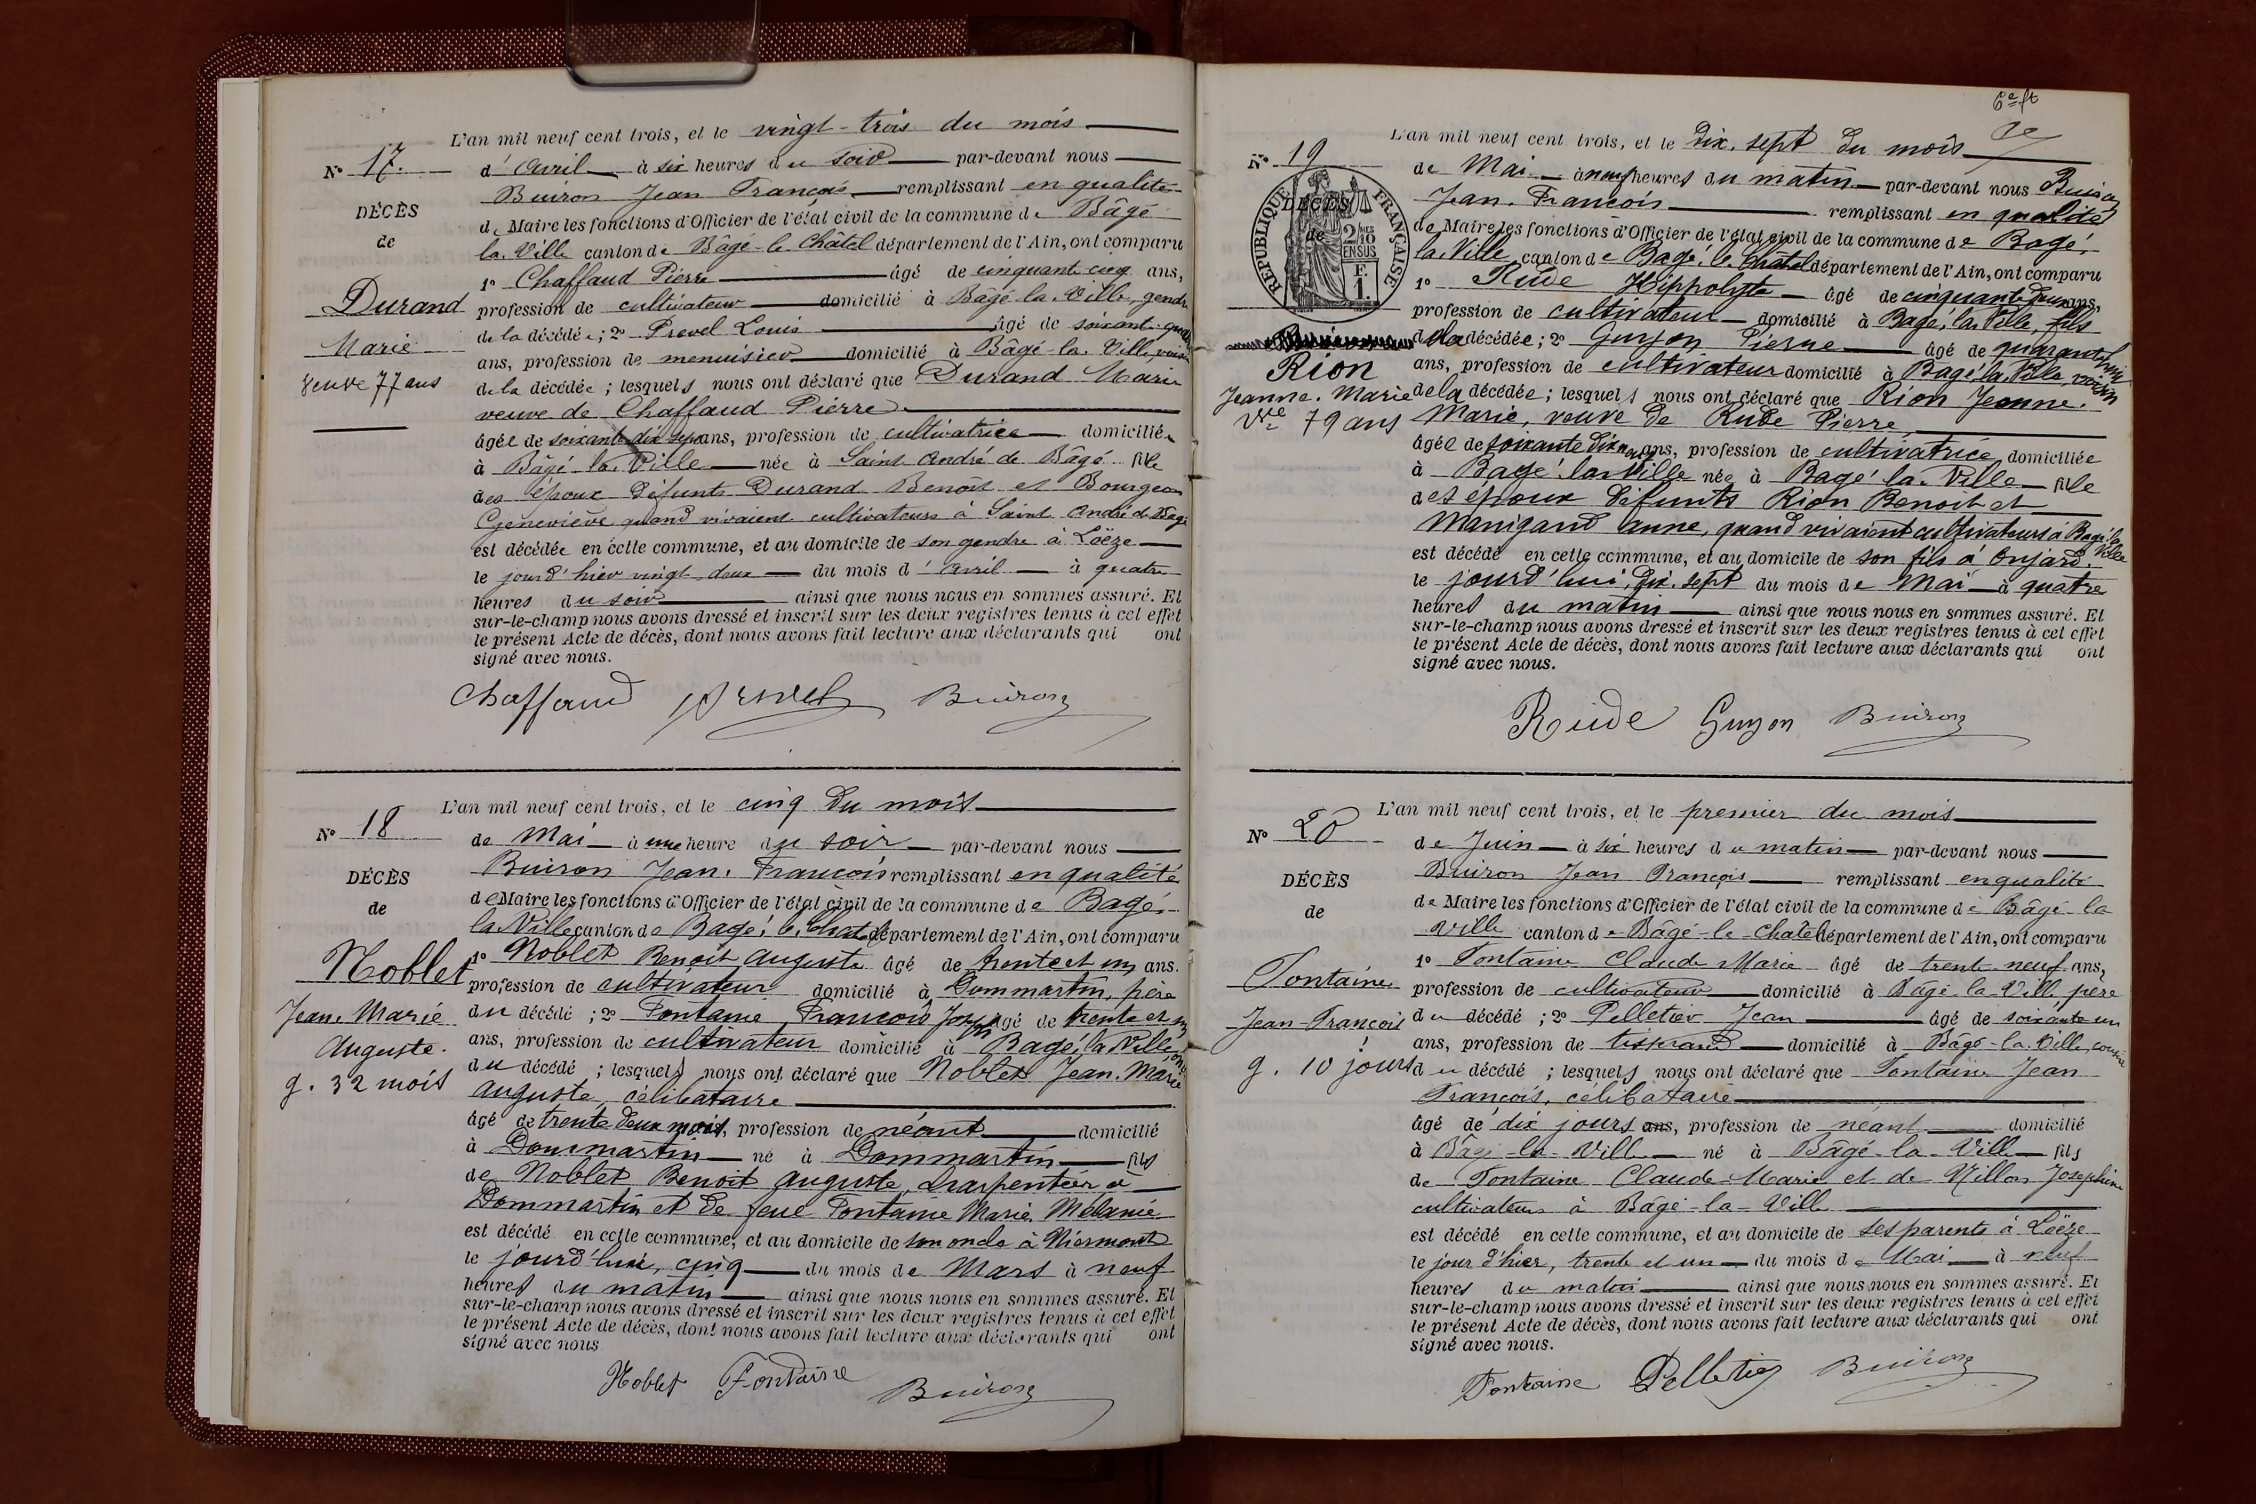 L'an mil neuf cent trois, et le vingt-trois du mois
N° 17.
d'Avril à six heures du soir par-devant nous
Buiron Jean François remplissant en qualité
DÉCÈS
de Maire les fonctions d'Officier de l'état civil de la commune de Bâgé
de
la Ville canton de Bâgé-le-Châtel département de l'Ain, ont comparu
1° Chaffaud Pierre âgé de cinquante cinq ans,
Durand
profession de cultivateur domicilié à Bâgé-la-Ville, gendre
de la décédée; 2° Prevel Louis âgé de soixante
Marie
ans, profession de menuisier domicilié à Bâgé-la-Ville, voisin
veuve 77 ans
de la décédée; lesquels nous ont déclaré que Durand Marie
veuve de Chaffaud Pierre
âgée de soixante dix sept ans, profession de cultivatrice domiciliée
à Bâgé-la-Ville née à Saint André de Bâgé fille
des époux défunts Durand Benoît et Bourgeon
Geneviève quand vivaient cultivateurs à Saint André de Bâgé
est décédée en cette commune, et au domicile de son gendre à Loëze
le jour d'hier vingt-deux du mois d'avril à quatre
heures du soir ainsi que nous nous en sommes assuré. Et
sur-le-champ nous avons dressé et inscrit sur les deux registres tenus à cet effet
le présent Acte de décès, dont nous avons fait lecture aux déclarants qui ont
signé avec nous.
Chaffaud Prevel Buiron
L'an mil neuf cent trois, et le cinq du mois
N° 18
de Mai à une heure du soir par-devant nous
Buiron Jean-François remplissant en qualité
DÉCÈS
de Maire les fonctions d'Officier de l'état civil de la commune de Bagé-
de
la-Ville canton de Bagé-le-Chatel département de l'Ain, ont comparu
1° Noblet Benoit Auguste âgé de trente et un ans.
Noblet
profession de cultivateur domicilié à Dommartin, père
du décédé; 2° Fontaine François Joseph âgé de trente et un
Jean-Marie
ans, profession de cultivateur domicilié à Bagé-la-Ville, oncle
Auguste.
du décédé; lesquels nous ont déclaré que Noblet Jean-Marie
g. 32 mois
Auguste, célibataire
âgé de trente deux mois, profession de néant domicilié
à Dommartin né à Dommartin fils
de Noblet Benoit Auguste, charpentier à
Dommartin et de feue Fontaine Marie Mélanie
est décédé en cette commune, et au domicile de son oncle à Niermont
le jourd'hui, cinq du mois de Mars à neuf
heures du matin ainsi que nous nous en sommes assuré. Et
sur-le-champ nous avons dressé et inscrit sur les deux registres tenus à cet effet
le présent Acte de décès, dont nous avons fait lecture aux déclarants qui ont
signé avec nous
Noblet Fontaine Buiron
6e ft
L'an mil neuf cent trois, et le dix-sept du mois
N° 19
de Mai à neuf heures du matin par-devant nous Buiron
Jean-François remplissant en qualité
RÉPUBLIQUE FRANÇAISE
2/10 EN SUS
F. 1.
DÉCÈS
de
de Maire les fonctions d'Officier de l'état civil de la commune de Bagé-
la-Ville canton de Bagé-le-Châtel département de l'Ain, ont comparu
1° Rude Hippolyte âgé de cinquante deux ans,
profession de cultivateur domicilié à Bagé-la-Ville, fils
de la décédée; 2° Guyon Pierre âgé de quarante
Rion
ans, profession de cultivateur domicilié à Bagé-la-Ville, voisin
Jeanne-Marie
de la décédée; lesquels nous ont déclaré que Rion Jeanne-
Vve 79 ans
Marie, veuve de Rude Pierre,
âgée de soixante dix neuf ans, profession de cultivatrice domiciliée
à Bagé-la-Ville née à Bagé-la-Ville fille
des époux défunts Rion Benoit et
Manigand Anne, quand vivaient cultivateurs à Bagé-la-Ville
est décédé en cette commune, et au domicile de son fils à Onjard.
le jourd'hui dix-sept du mois de Mai à quatre
heures du matin ainsi que nous nous en sommes assuré. Et
sur-le-champ nous avons dressé et inscrit sur les deux registres tenus à cet effet
le présent Acte de décès, dont nous avons fait lecture aux déclarants qui ont
signé avec nous.
Rude Guyon Buiron
L'an mil neuf cent trois, et le premier du mois
N° 20
de Juin à six heures du matin par-devant nous
Buiron Jean François remplissant en qualité
DÉCÈS
de Maire les fonctions d'Officier de l'état civil de la commune de Bâgé-la
de
Ville canton de Bâgé-le-Châtel département de l'Ain, ont comparu
1° Fontaine Claude Marie âgé de trente-neuf ans,
Fontaine
profession de cultivateur domicilié à Bâgé-la-Ville, père
Jean-François
du décédé; 2° Pelletier Jean âgé de soixante un
ans, profession de tisserand domicilié à Bâgé-la-Ville, cousin
g. 10 jours
du décédé; lesquels nous ont déclaré que Fontaine Jean
François, célibataire
âgé de dix jours ans, profession de néant domicilié
à Bâgé-la-Ville né à Bâgé-la-Ville fils
de Fontaine Claude Marie et de Millon Joséphine
cultivateurs à Bâgé-la-Ville
est décédé en cette commune, et au domicile de ses parents à Loëze
le jour d'hier, trente et un du mois de Mai à neuf
heures du matin ainsi que nous nous en sommes assuré. Et
sur-le-champ nous avons dressé et inscrit sur les deux registres tenus à cet effet
le présent Acte de décès, dont nous avons fait lecture aux déclarants qui ont
signé avec nous.
Fontaine Pelletier Buiron